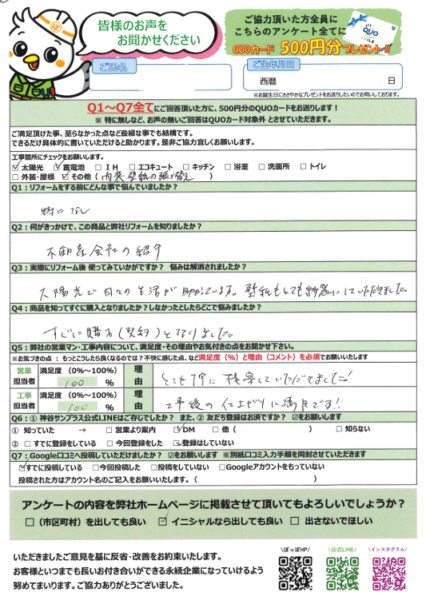 皆様のお声を
お聞かせください
ご協力頂いた方全員に
こちらのアンケート全てに
QUOカード 500円分プレゼント!!
ご氏名
ご生年月日
西暦 日
※お誕生日にささやかなプレゼントをお送りしたいのでお伺いしております。
Q1~Q7全てにご回答頂いた方に、500円分のQUOカードをお送りします!
※ 特に無しなど、お声の無いご回答はQUOカード対象外 とさせていただきます。
ご満足頂けた事、至らなかった点など些細な事でも結構です。
できるだけ具体的に書いていただけると助かります。是非ご協力宜しくお願いします。
工事箇所にチェックをお願いします。
☑太陽光 ☑蓄電池 □IH □エコキュート □キッチン □浴室 □洗面所 □トイレ
□外装・屋根 ☑その他( 内装 壁紙の張り替え )
Q1:リフォームをする前にどんな事で悩んでいましたか?
特になし
Q2:何がきっかけで、この商品と弊社リフォームを知りましたか?
不動産会社の紹介
Q3:実際にリフォーム後 使ってみていかがですか? 悩みは解消されましたか?
太陽光で日々の生活が助かっています。壁紙もとても綺麗にしていただきました。
Q4:商品を知ってすぐに購入となりましたか?しなかったとしたらどこで悩みましたか?
すぐに購入(契約)となりました。
Q5:弊社の営業マン・工事内容について、満足度・その理由やお気付きの点をお聞かせ下さい。
※お気づきの点:もっとこうしたら良くなるのでは?不快に感じた点、など満足度(%)と理由(コメント)を必須でお願いいたします
営業担当者 満足度(0%~100%) 100 % 理由 とても丁寧に提案していただけました!
工事担当者 満足度(0%~100%) 100 % 理由 工事後の仕上がりに満足です!
Q6:① 神谷サンプラス公式LINEはご存じでしたか? また、② 友だち登録はお済ですか? ☑をお願いします
① 知っていた → □営業より案内 ☑DM □他( ) □知らない
② □すでに登録している □今回登録をした ☑登録はしていない
Q7:Google口コミへ投稿していただけましたか? ☑をお願いします ※別紙口コミ入力手順を同封させていただきます
☑すでに投稿している □今回投稿した □投稿をしていない □Googleアカウントをもっていない
投稿された方はアカウント名のご記入をお願いいたします。( )
アンケートの内容を弊社ホームページに掲載させて頂いてもよろしいでしょうか?
□(市区町村)を出しても良い ☑イニシャルなら出しても良い □出さないでほしい
いただきましたご意見を基に反省・改善をお約束いたします。
お客様といつまでも長いお付き合いができる永続企業になっていけるよう
努めてまいります。ご協力ありがとうございました。
\ぽっぽHP/ \公式LINE/ \インスタグラム/